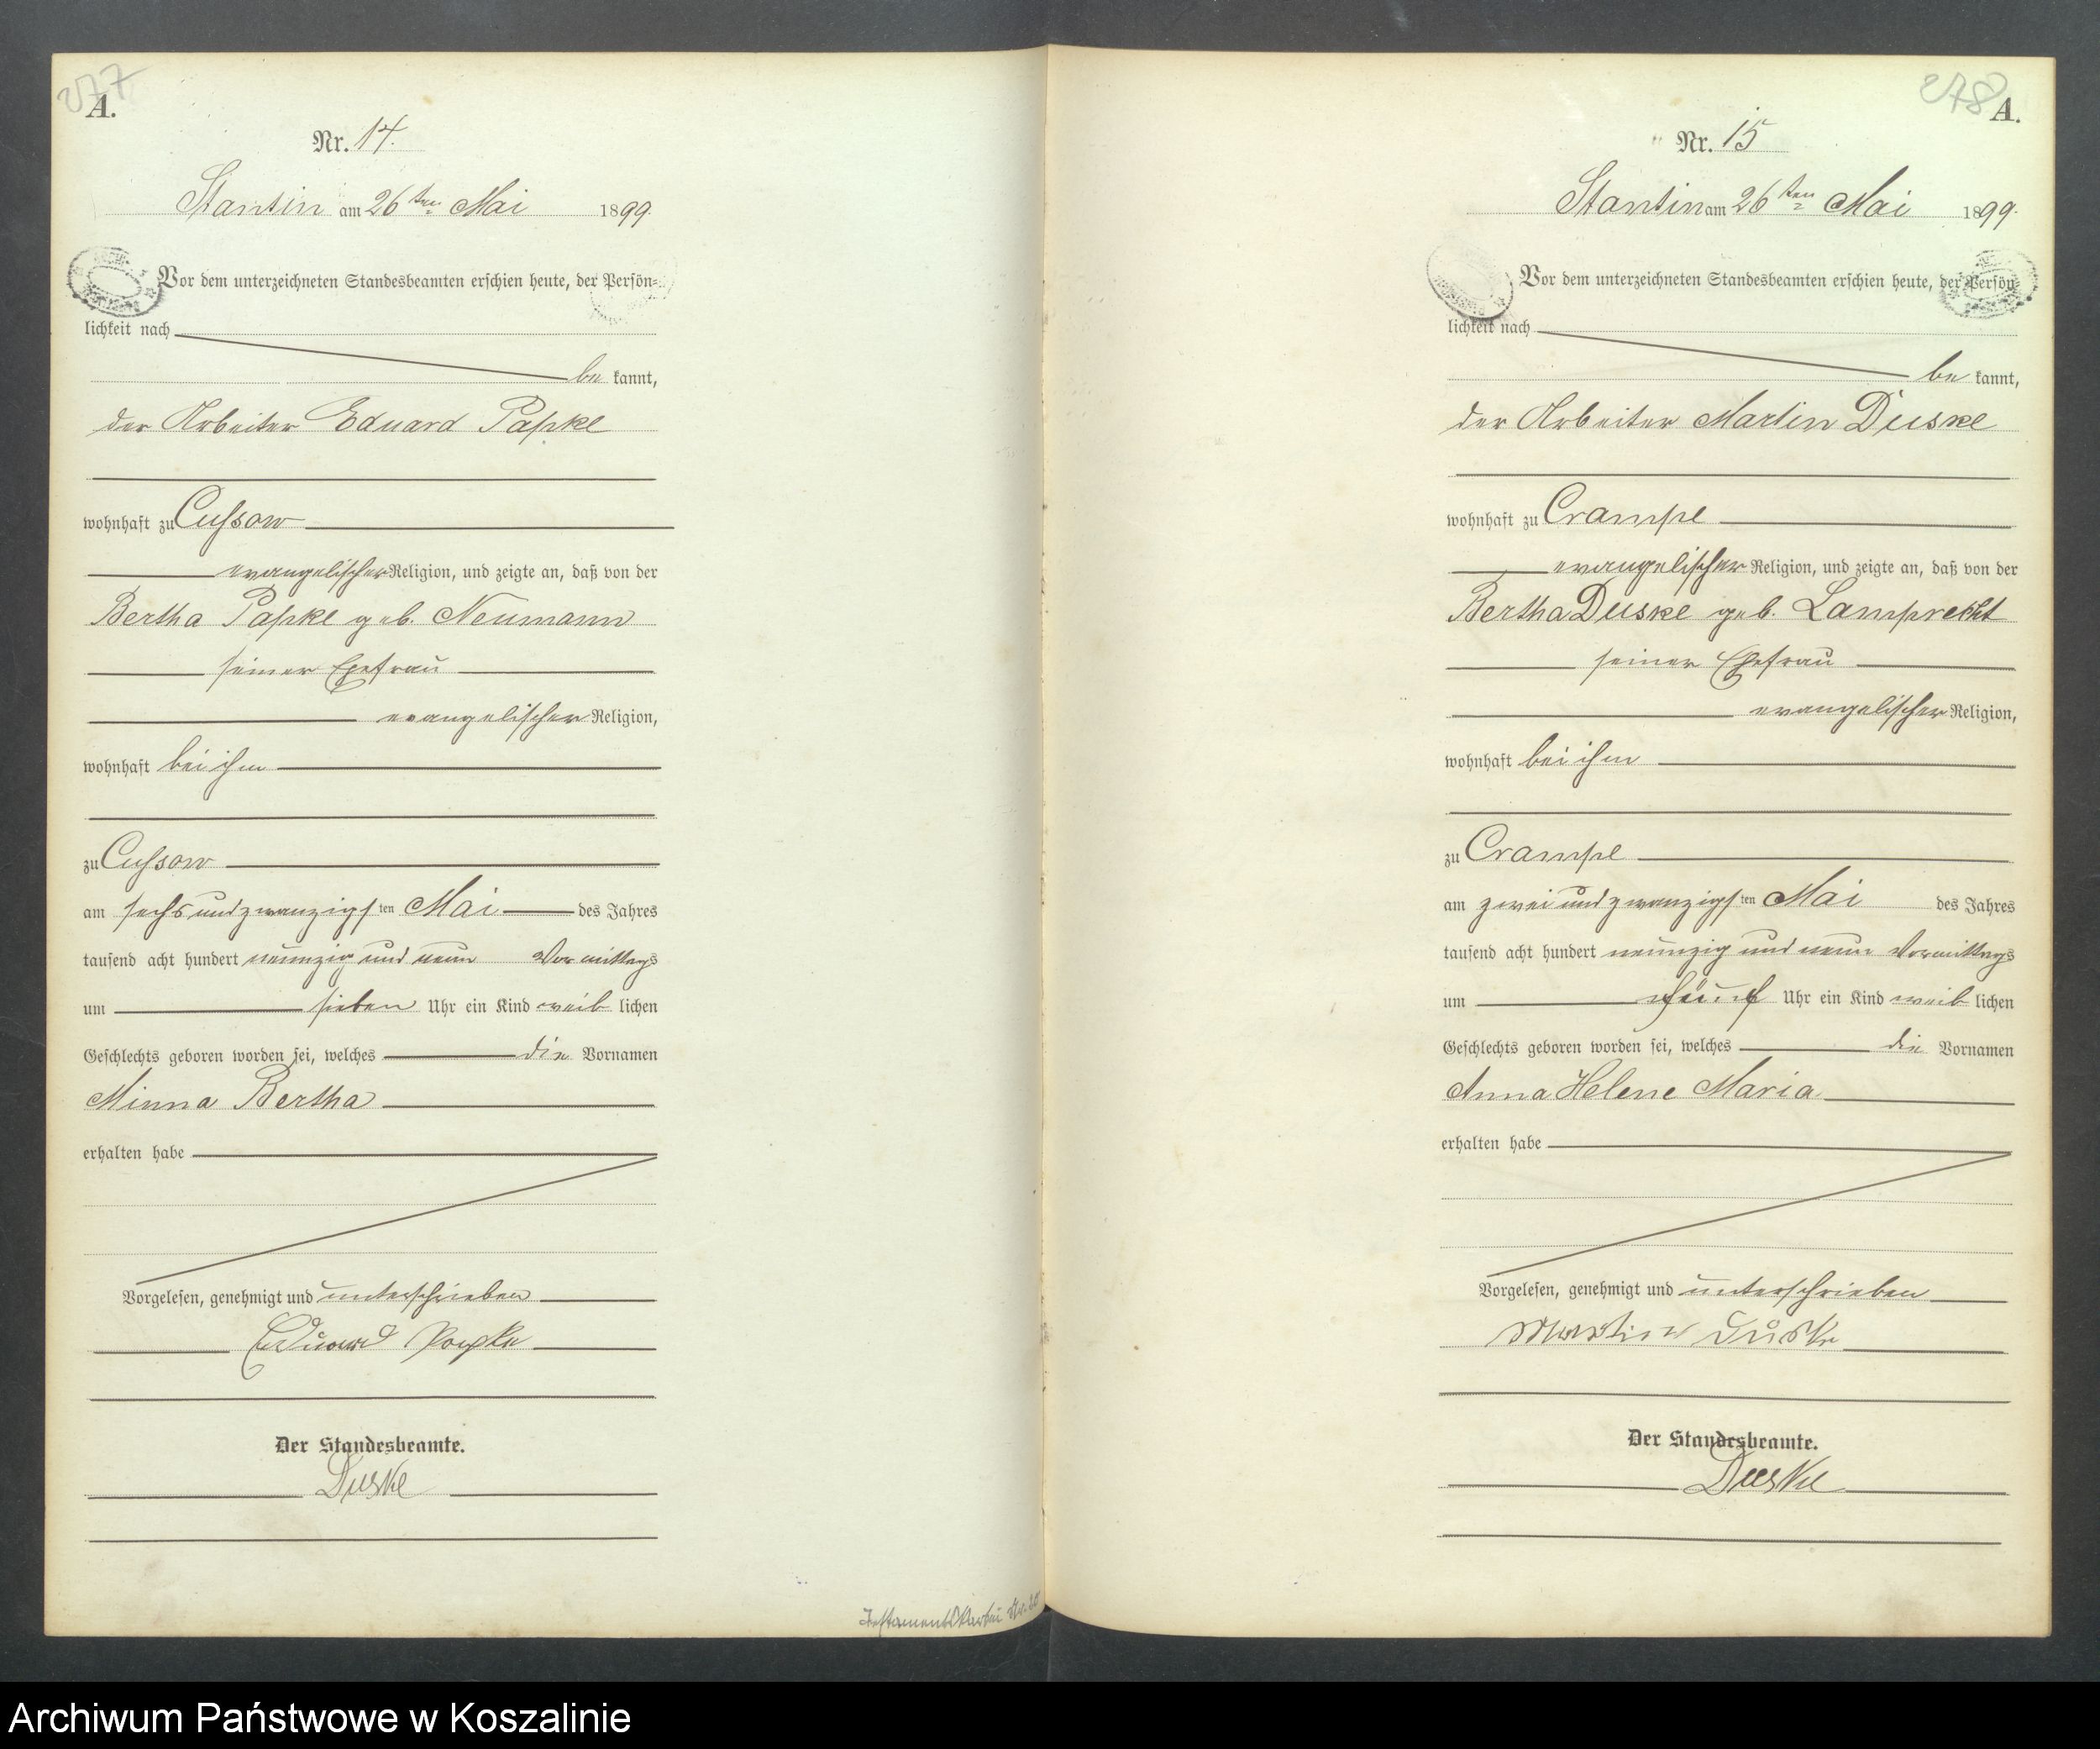 277
A.
Nr. 14.
Stantin am 26ten Mai 1899.
Vor dem unterzeichneten Standesbeamten erschien heute, der Persön=
lichkeit nach
be kannt,
der Arbeiter Eduard Papke
wohnhaft zu Cussow
evangelischer Religion, und zeigte an, daß von der
Bertha Papke geb. Neumann
seiner Ehefrau
evangelischer Religion,
wohnhaft bei ihm
zu Cussow
am sechs und zwanzigsten Mai des Jahres
tausend acht hundert neunzig und neun Vormittags
um sieben Uhr ein Kind weib lichen
Geschlechts geboren worden sei, welches die Vornamen
Minna Bertha
erhalten habe
Vorgelesen, genehmigt und unterschrieben
Eduard Papke
Der Standesbeamte.
Duske
278
A.
Nr. 15
Stantin am 26ten Mai 1899.
Vor dem unterzeichneten Standesbeamten erschien heute, der Persön=
lichkeit nach
be kannt,
der Arbeiter Martin Duske
wohnhaft zu Crampe
evangelischer Religion, und zeigte an, daß von der
Bertha Duske geb. Lamprecht
seiner Ehefrau
evangelischer Religion,
wohnhaft bei ihm
zu Crampe
am zwei und zwanzigsten Mai des Jahres
tausend acht hundert neunzig und neun Vormittags
um fünf Uhr ein Kind weib lichen
Geschlechts geboren worden sei, welches die Vornamen
Anna Helene Maria
erhalten habe
Vorgelesen, genehmigt und unterschrieben
Martin Duske
Der Standesbeamte.
Duske
Archiwum Państwowe w Koszalinie